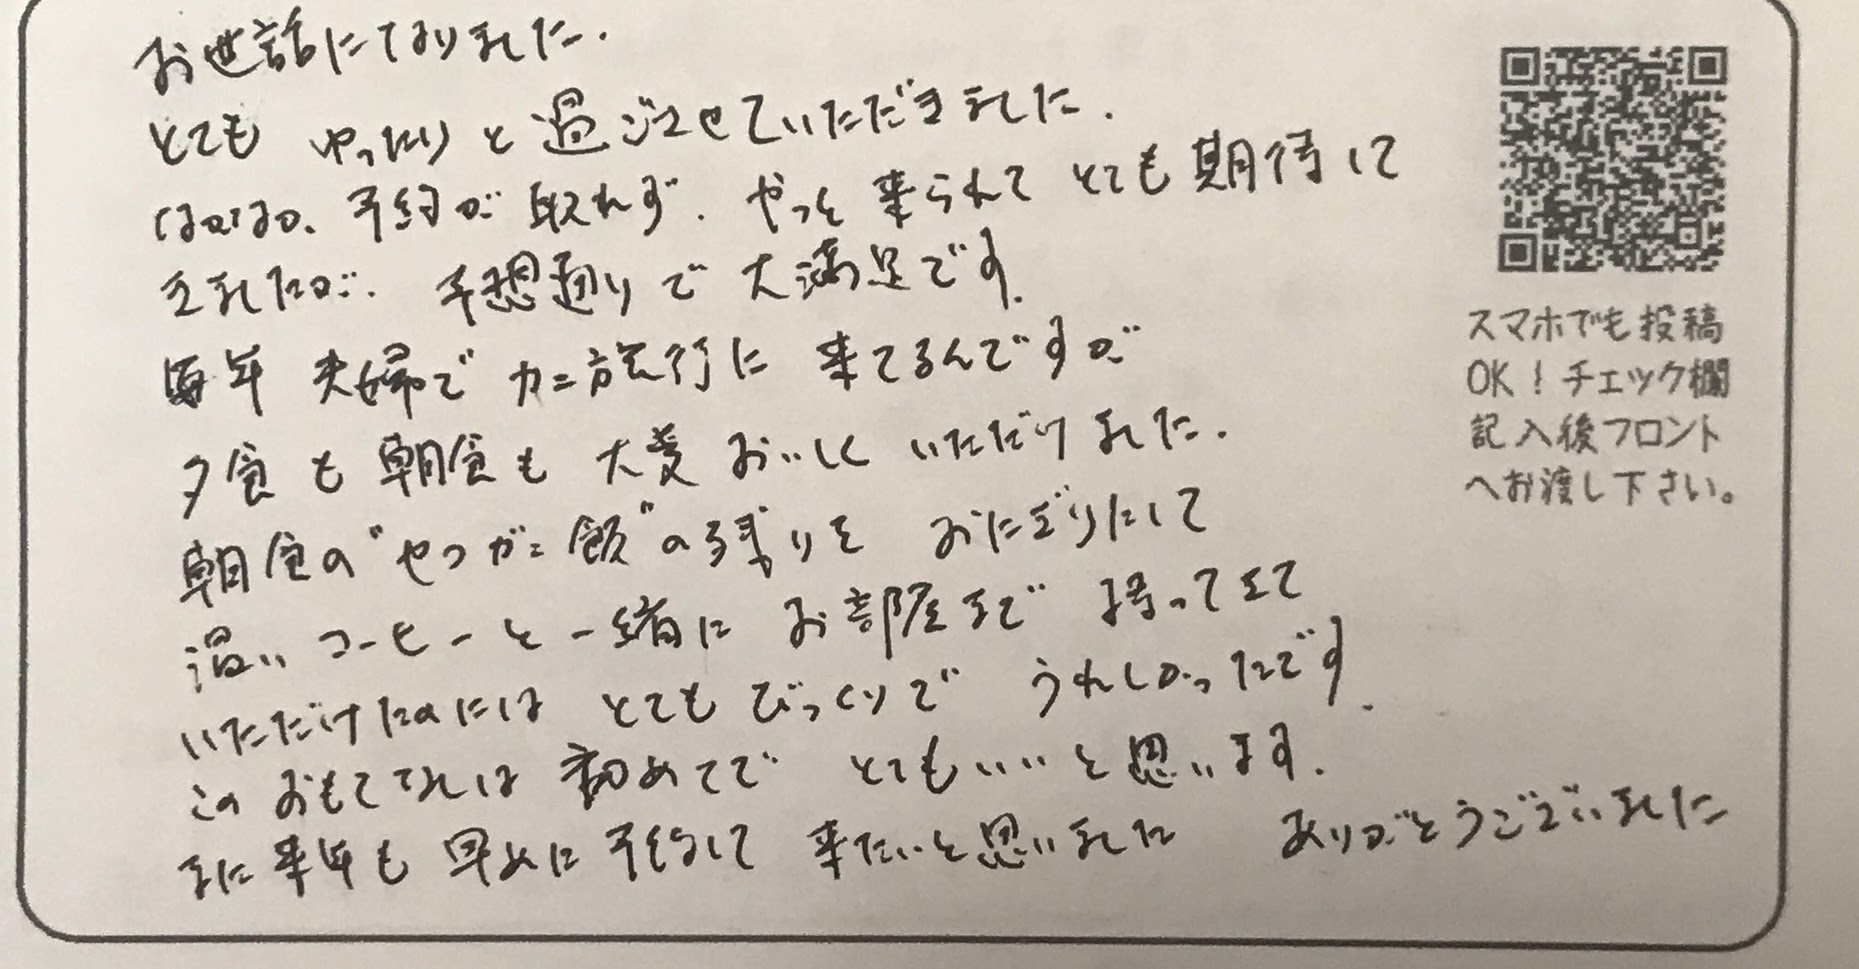 お世話になりました.
とても ゆったりと過ごさせていただきました.
なかなか、予約が取れず、やっと来られてとても期待して
きましたが、予想通りで大満足です.
毎年 夫婦でカニ旅行に来てるんですが
夕食も朝食も大変おいしくいただけました.
朝食の"せこガニ飯"の残りをおにぎりにして
温いコーヒーと一緒にお部屋まで持ってきて
いただけたのにはとてもびっくりでうれしかったです.
このおもてなしは初めてでとてもいいと思います.
また来年も早めに予約して来たいと思いました ありがとうございました
スマホでも投稿
OK!チェック欄
記入後フロント
へお渡し下さい。